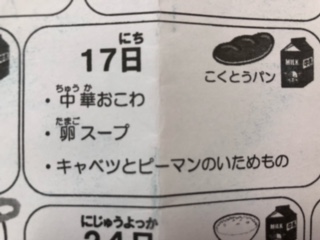 にち
17日
こくとうパン
MILK
ちゅうか
・中華おこわ
たまご
・卵スープ
・キャベツとピーマンのいためもの
にじゅうよっか
24日
MILK